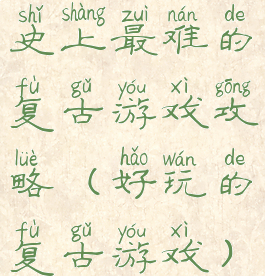 shǐ shàng zuì nán de
史上最难的
fù gǔ yóu xì gōng
复古游戏攻
lüè hǎo wán de
略（好玩的
fù gǔ yóu xì
复古游戏）